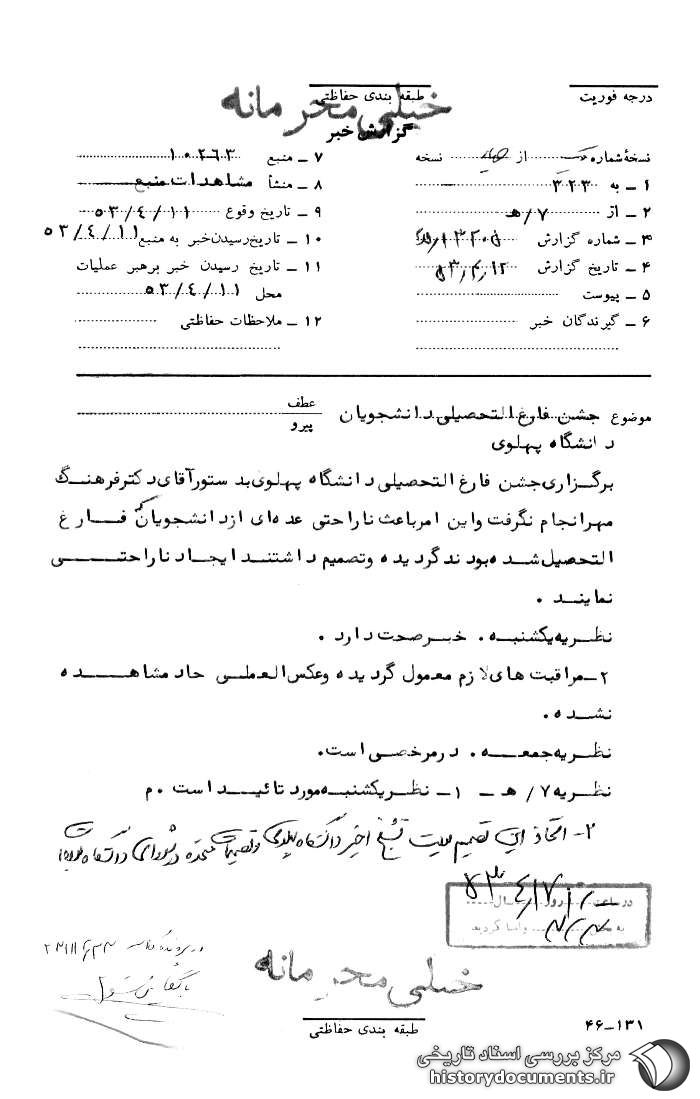 درجه فوریت
طبقه بندی حفاظتی
خیلی محرمانه
گزارش خبر
نسخهٔ شماره از نسخه
۱ ـ به ۳۲۳
۲ ـ از ۷/هـ
۳ ـ شماره گزارش
۴ ـ تاریخ گزارش ۵۳/۴/۱۲
۵ ـ پیوست
۶ ـ گیرندگان خبر
۷ ـ منبع ۱۰۲۶۳
۸ ـ منشأ مشاهدات منبع
۹ ـ تاریخ وقوع ۵۳/۴/۱۱
۱۰ ـ تاریخ رسیدن خبر به منبع ۵۳/۴/۱۱
۱۱ ـ تاریخ رسیدن خبر برهبر عملیات
محل ۵۳/۴/۱۱
۱۲ ـ ملاحظات حفاظتی
موضوع جشن فارغ التحصیلی دانشجویان
دانشگاه پهلوی
عطف
پیرو
برگزاری جشن فارغ التحصیلی دانشگاه پهلوی بدستور آقای دکتر فرهنگ
مهر انجام نگرفت و این امر باعث ناراحتی عده ای از دانشجویان که فارغ
التحصیل شده بودند گردیده و تصمیم داشتند ایجاد ناراحتی
نمایند .
نظریه یکشنبه . خبر صحت دارد .
۲ـ مراقبت های لازم معمول گردیده و عکس العملی حاد مشاهده
نشده .
نظریه جمعه . در مرخصی است.
نظریه ۷/هـ ـ ۱ـ نظر یکشنبه مورد تائید است . م
۲ـ اتخاذ این تصمیم اخیر دانشگاه پهلوی و تصمیمات متخذه در شورای دانشگاه
در ساعت روز سال
خیلی محرمانه
طبقه بندی حفاظتی
۴۶ـ۱۳۱
مرکز بررسی اسناد تاریخی
historydocuments.ir